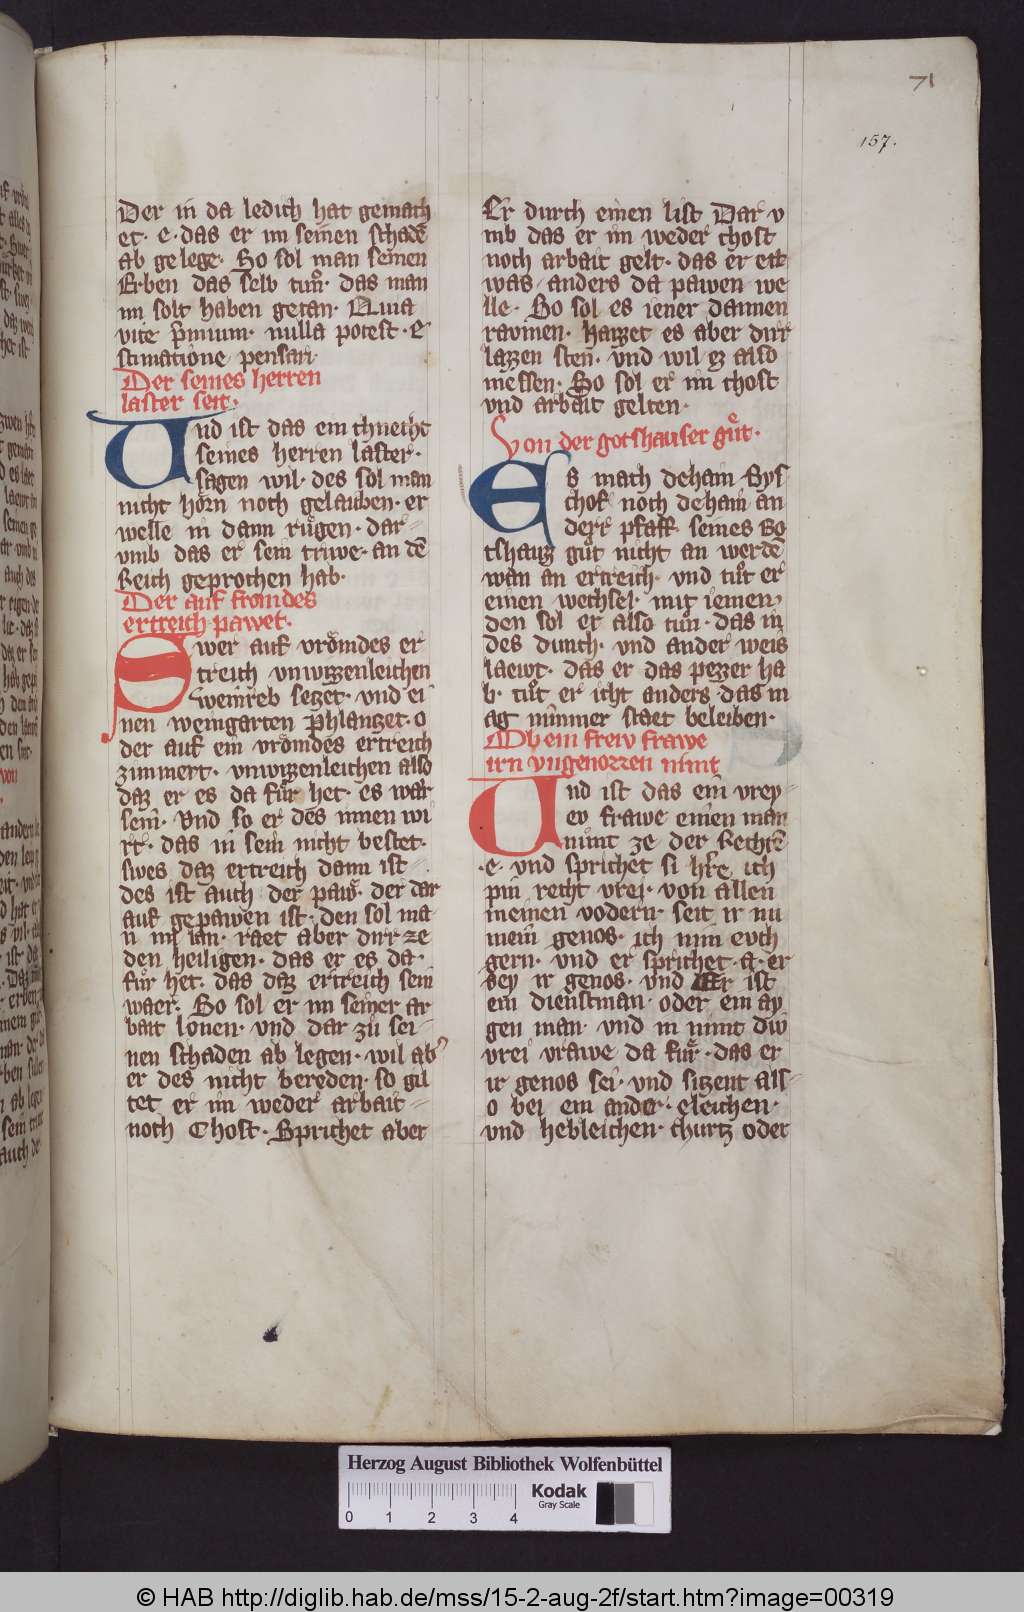 71
157.
Der in da ledich hat gemach
et· e·das er im seinen schadē
ab gelege· So sol man seinen
Erben das selb tuͦn· das man
im solt haben getan· Quia
vite p̄mium· nulla potest· e
stimatione pensari·
Der seines herren
laster seit·
Und ist das ein chneiht
seines herren laster·
sagen wil· des sol man
nicht hörn noch gelauben· er
welle in dann rügen· dar⸗
vmb das er sein triwe· an dē
Reich geprochen hab·
Der auf fromdes
ertreich pawet·
Swer auf vrömdes er
treich vnwizzenleichen
Weinreb sezet· vnd ei
nen weingarten Phlanzet· o
der auf ein vrömdes ertreich
zimmert· vnwizzenleichen also
daz er es da für het· es wær
sein· Vnd so er des innen wi
rt· das in sein nicht bestet·
swes daz ertreich dann ist⸗
des ist auch der paw· der dar
auf gepawen ist· den sol ma
n im lan· raet aber dirr ze
den heiligen· das er es da·
für het· das daz ertreich sein
waer· So sol er im seiner ar
bait lonen· vnd dar zu sei⸗
nen schaden ab legen· wil ab᾽
er des nicht bereden· so gil
tet er im weder arbait⸗
noch Chost· Sprichet aber
Er durch einen list Dar v
mb das er im weder chost
noch arbait gelt· das er ett
was anders da pawen we
lle· So sol es iener dannen
ravmen· hazzet es aber dirr
lazzen sten· vnd wil ez also
niessen· So sol er im chost
vnd arbait gelten·
Von der gotshauser guͤt·
Es mach dehain Bys
chof noch dehain an
derr pfaff seines Go
tshauz guͤt nicht an werdē
wan an ertreich· vnd tuͦt er
einen wechsel· mit iemen,
den sol er also tuͦn· das in
des dunch· vnd ander weis
laewt· das er das pezzer ha
b· tuͦt er icht anders das m
ag nimmer staet beleiben·
Ob ein freiv frawe
irn vngenozzen nimt
Und ist das ein vrey⸗
ev frawe einen man
nimt ze der Rechtē
·e· vnd sprichet si h̄re ich
pin recht vrei· von allen
meinen vodern· seit ir nu
mein genos· ich nim evch
gern· vnd er sprichet·A·er
sey ir genos· vnd Er ist
ein dienstman· oder ein ay
gen man· vnd in nimt diͮ
vrei vrawe da für· das er
ir genos sei· vnd sizent als⸗
o bei ein ander· eleichen·
vnd hebleichen· churtz oder
Herzog August Bibliothek Wolfenbüttel
0 1 2 3 4
Kodak
Gray Scale
© HAB http://diglib.hab.de/mss/15-2-aug-2f/start.htm?image=00319